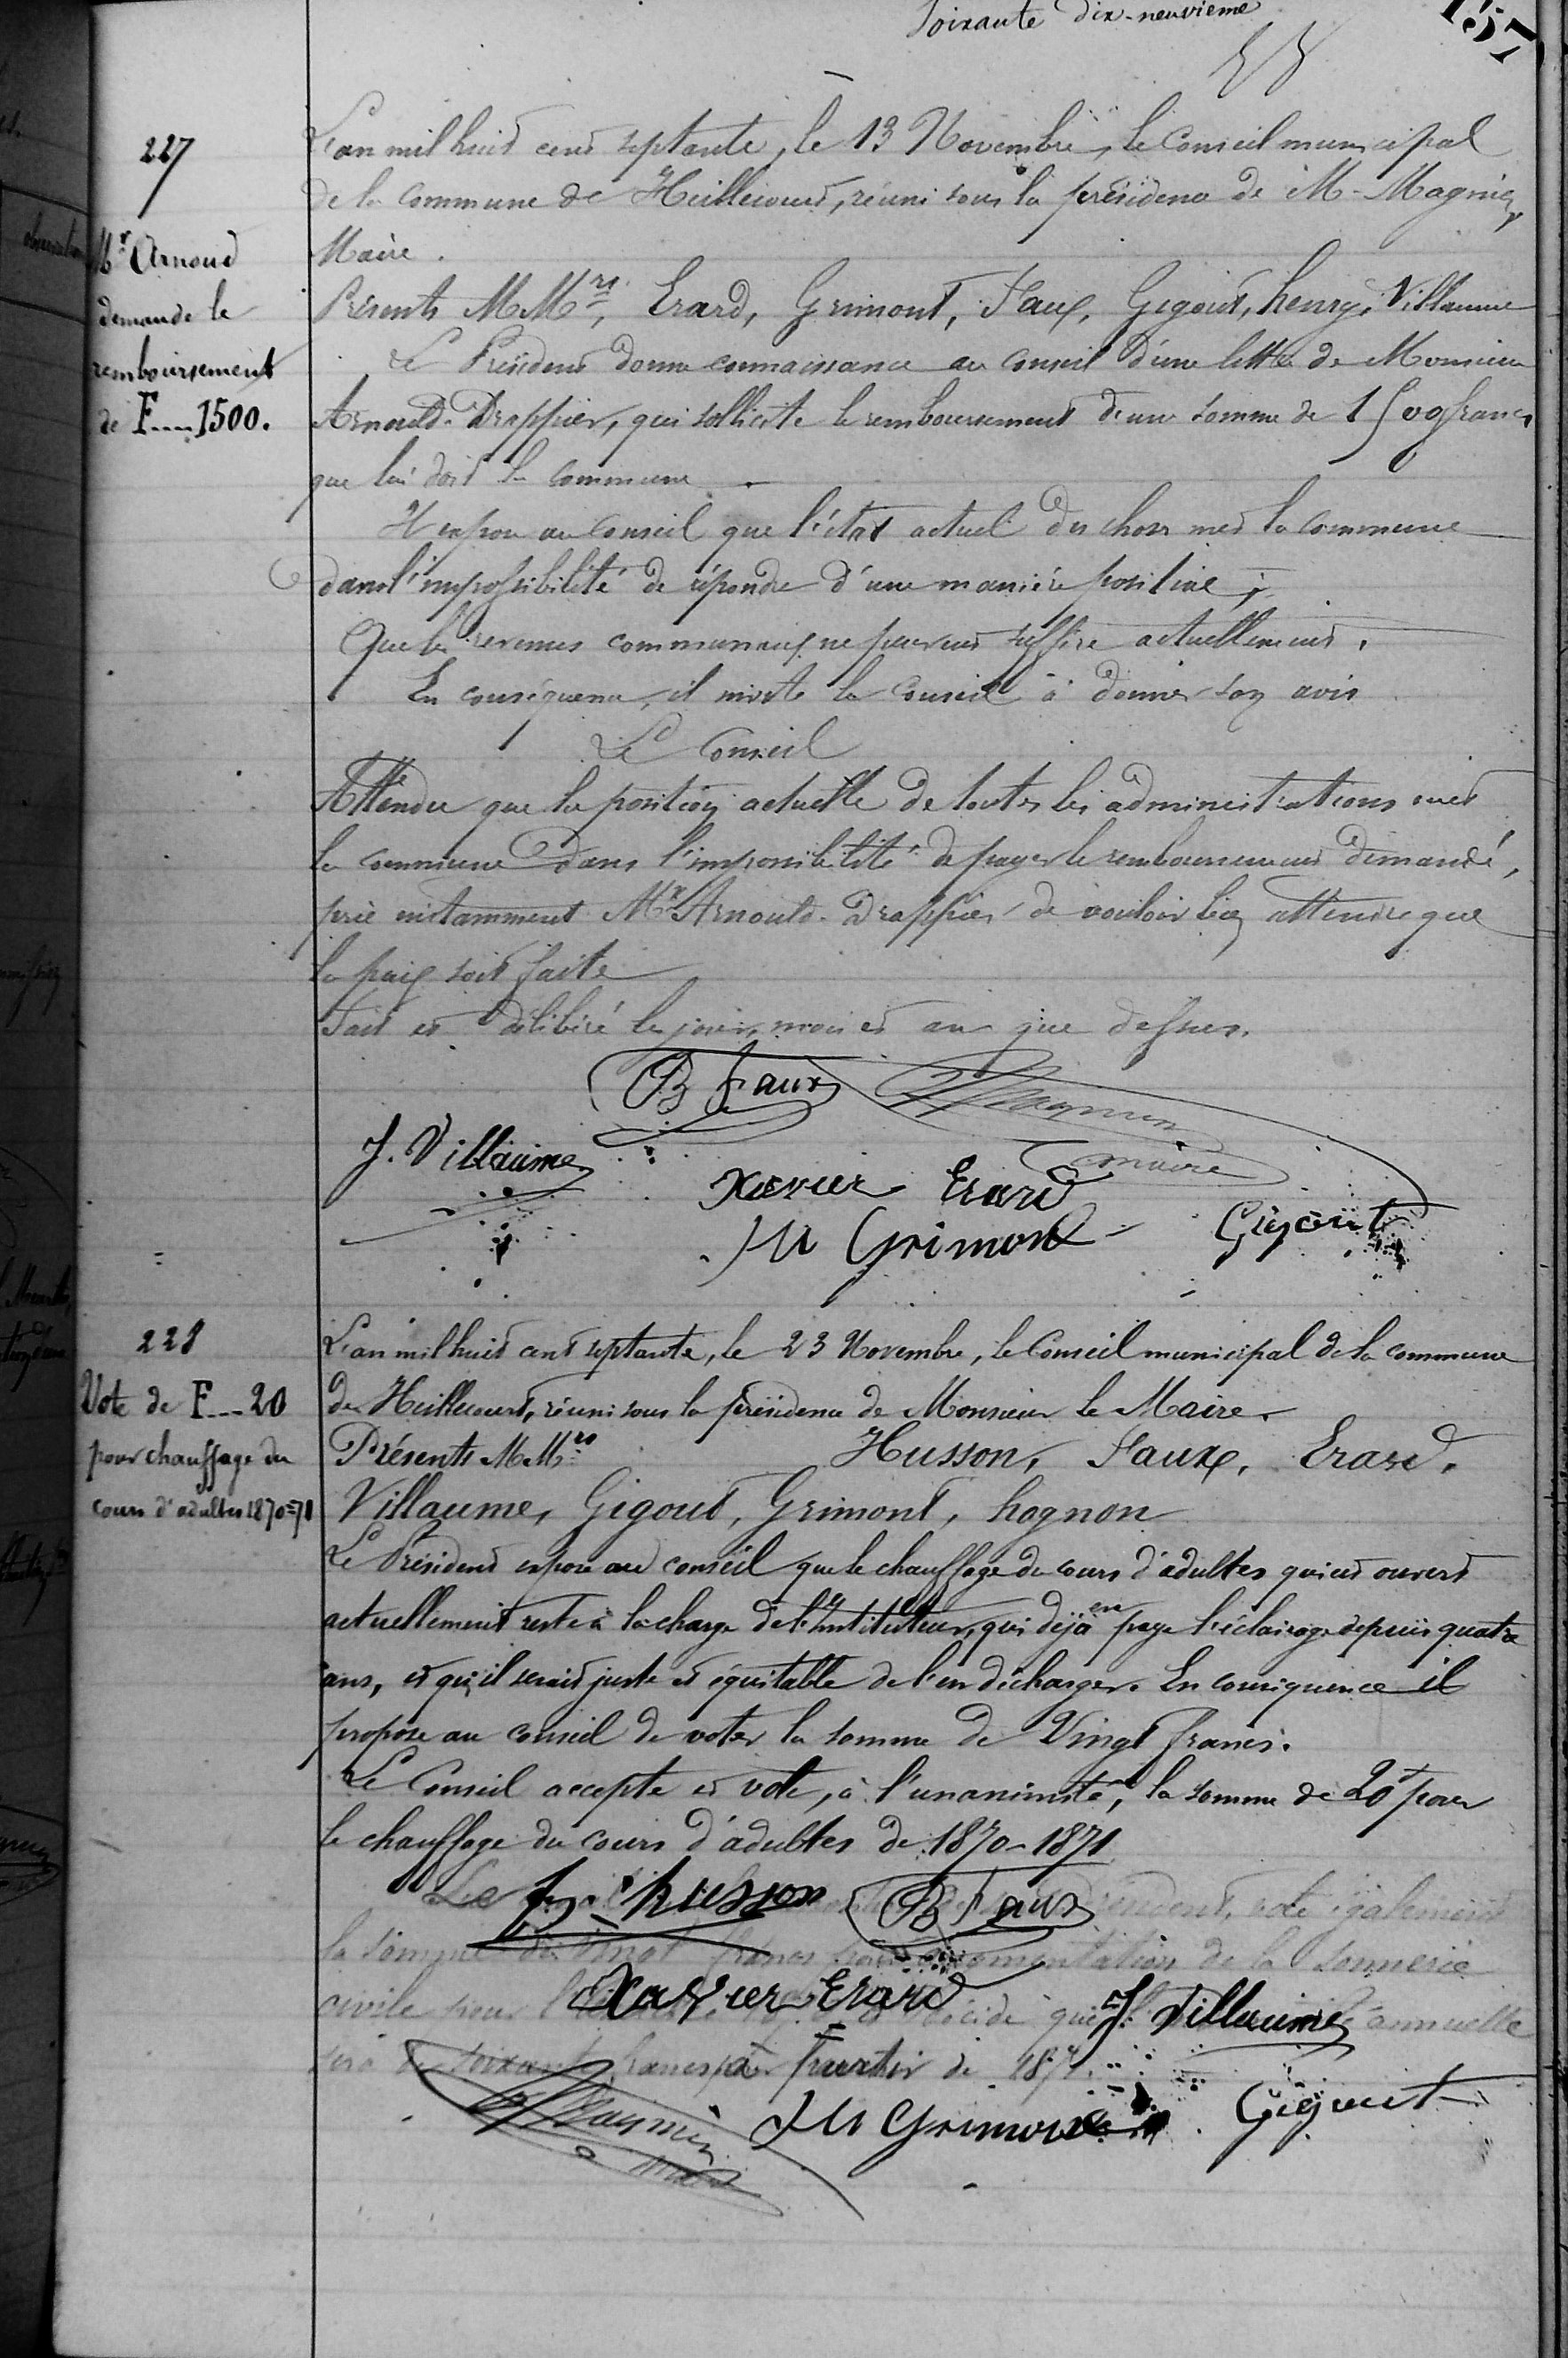 Soixante dix-neuvième
157
227
Mr Arnoud
demande le
remboursement
de F.....1500.
L'an mil huit cent septante, le 13 Novembre, le Conseil municipal
de la commune de Huillecourt, réuni sous la présidence de M. Magnien,
Maire.
Présents M.Mrs, Erard, Grimont, Faux, Gigout, henry, Villaume
Le Président donne connaissance au conseil d'une lettre de Monsieur
Arnould-Drappier, qui sollicite le remboursement d'une somme de 1500 francs
que lui doit la commune.
Il expose au conseil que l'état actuel des choses met la commune
dans l'impossibilité de répondre d'une manière positive;
Que les revenus communaux ne peuvent suffire actuellement.
En conséquence, il invite le Conseil à donner son avis
Le Conseil
Attendu que la position actuelle de toutes les administrations met
la commune dans l'impossibilité de payer le remboursement demandé,
prie instamment Mr Arnould-Drappier de vouloir bien attendre que
la paix soit faite
Fait et délibéré les jour, mois et an que dessus.
B Faux
Magnien
maire
J. Villaume
Xavier Erard
JM Grimont
Gigout
228
Vote de F...20
pour chauffage du
cours d'adultes 1870=71
L'an mil huit cent septante, le 23 Novembre, le Conseil municipal de la commune
de Huillecourt, réuni sous la présidence de Monsieur le Maire.
Présents M.Mrs Husson, Faux, Erard,
Villaume, Gigout, Grimont, hognon
Le Président expose au conseil que le chauffage du cours d'adultes qui est ouvert
actuellement reste à la charge de l'Instituteur, qui déjà en paye l'éclairage depuis quatre
ans, et qu'il serait juste et équitable de l'en décharger. En conséquence il
propose au conseil de voter la somme de Vingt francs.
Le Conseil accepte et vote, à l'unanimité, la somme de 20f pour
le chauffage du cours d'adultes de 1870-1871
Le président, vote également
la somme de vingt francs pour augmentation de la sonnerie
civile pour décide que annuelle
sera de soixante francs à partir de 187
husson
B Faux
Xavier Erard
J. Villaume
Magnien
JM Grimont
Gigout